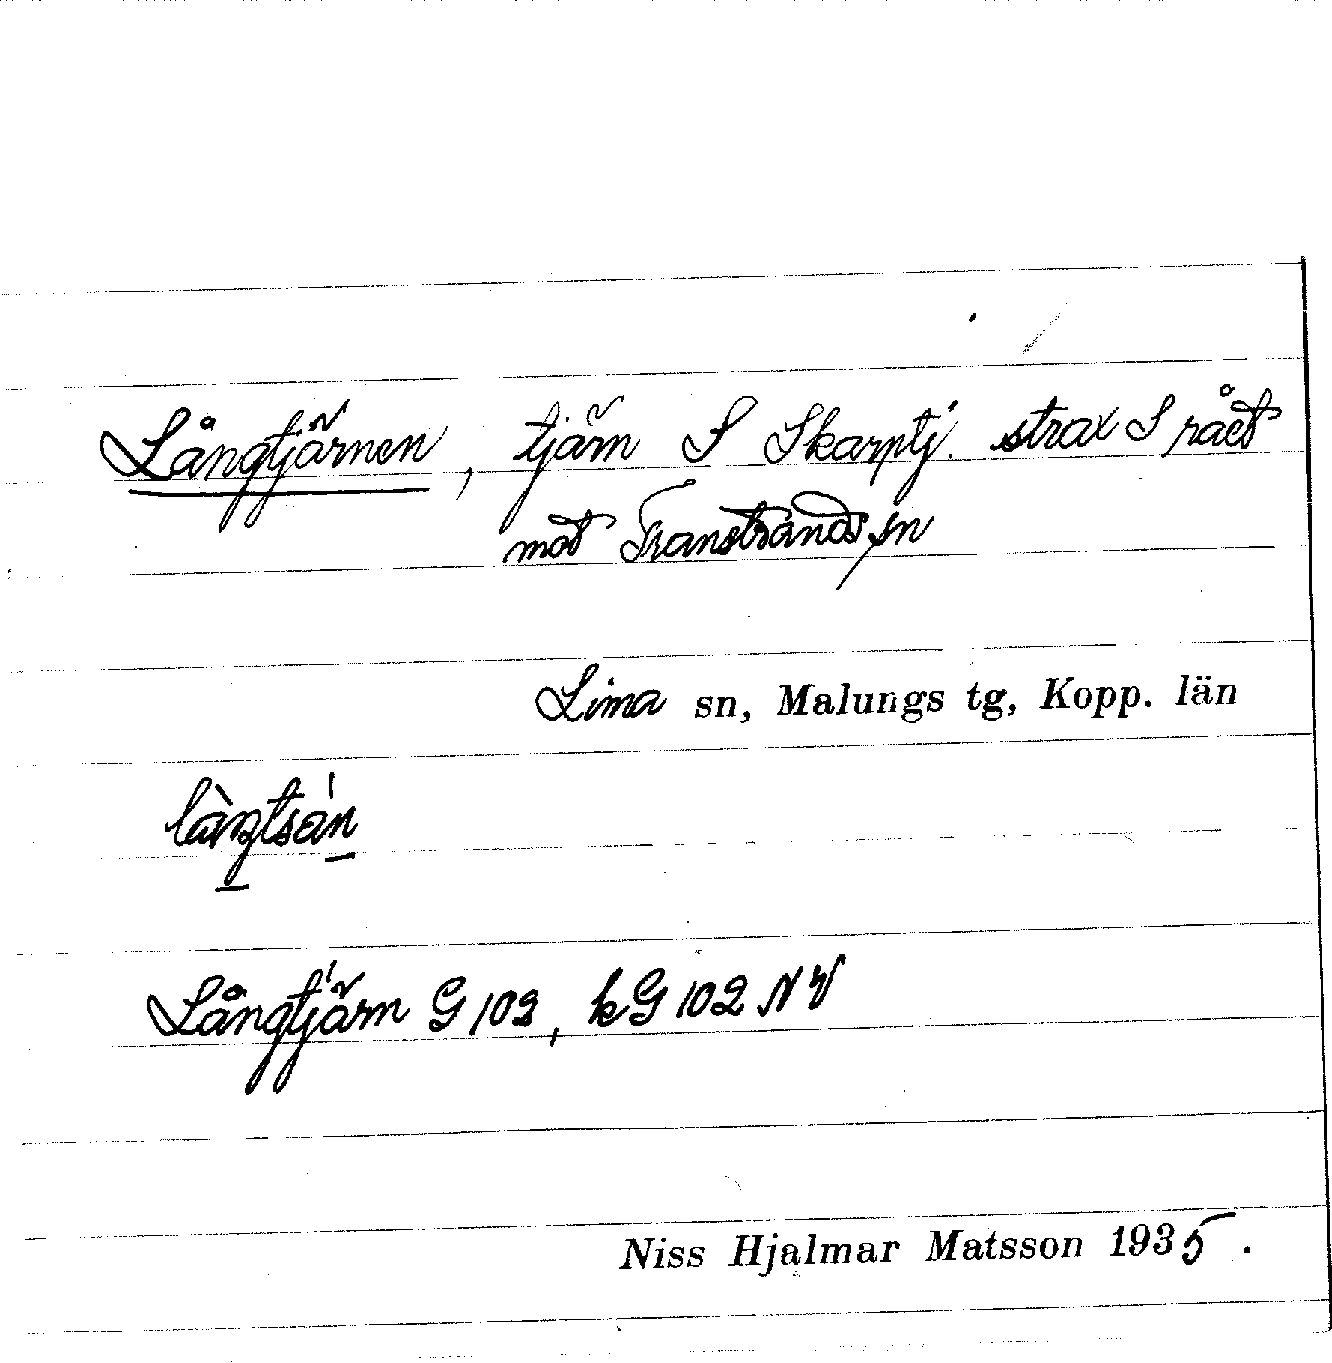 Långtjärnen, tjärn S Skarptj. strax S rået
mot Transtrands sn
Lima sn, Malungs tg, Kopp. län
Långtjärn G 102, kG 102 NV
Niss Hjalmar Matsson 1935.